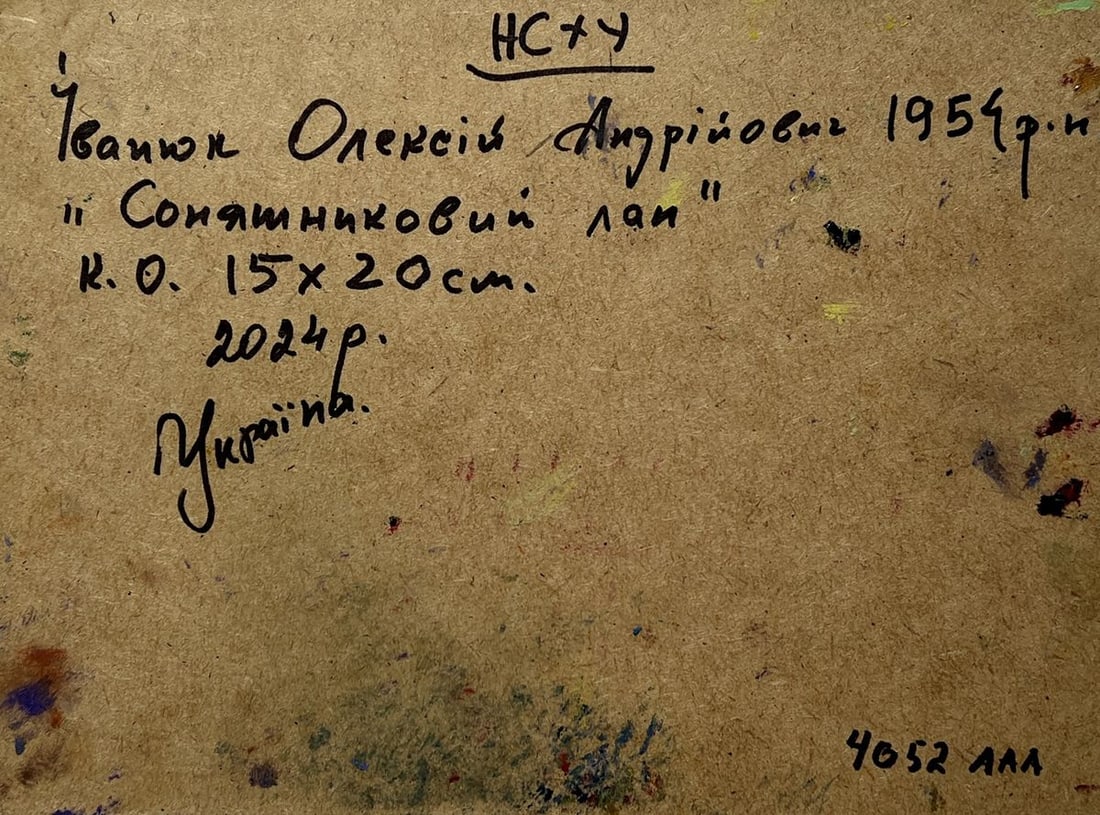 НСХУ
Іванюк Олексій Андрійович 1954 р.н
"Соняшниковий лан"
К.О. 15х20см.
2024р.
Україна.
4052 ААА